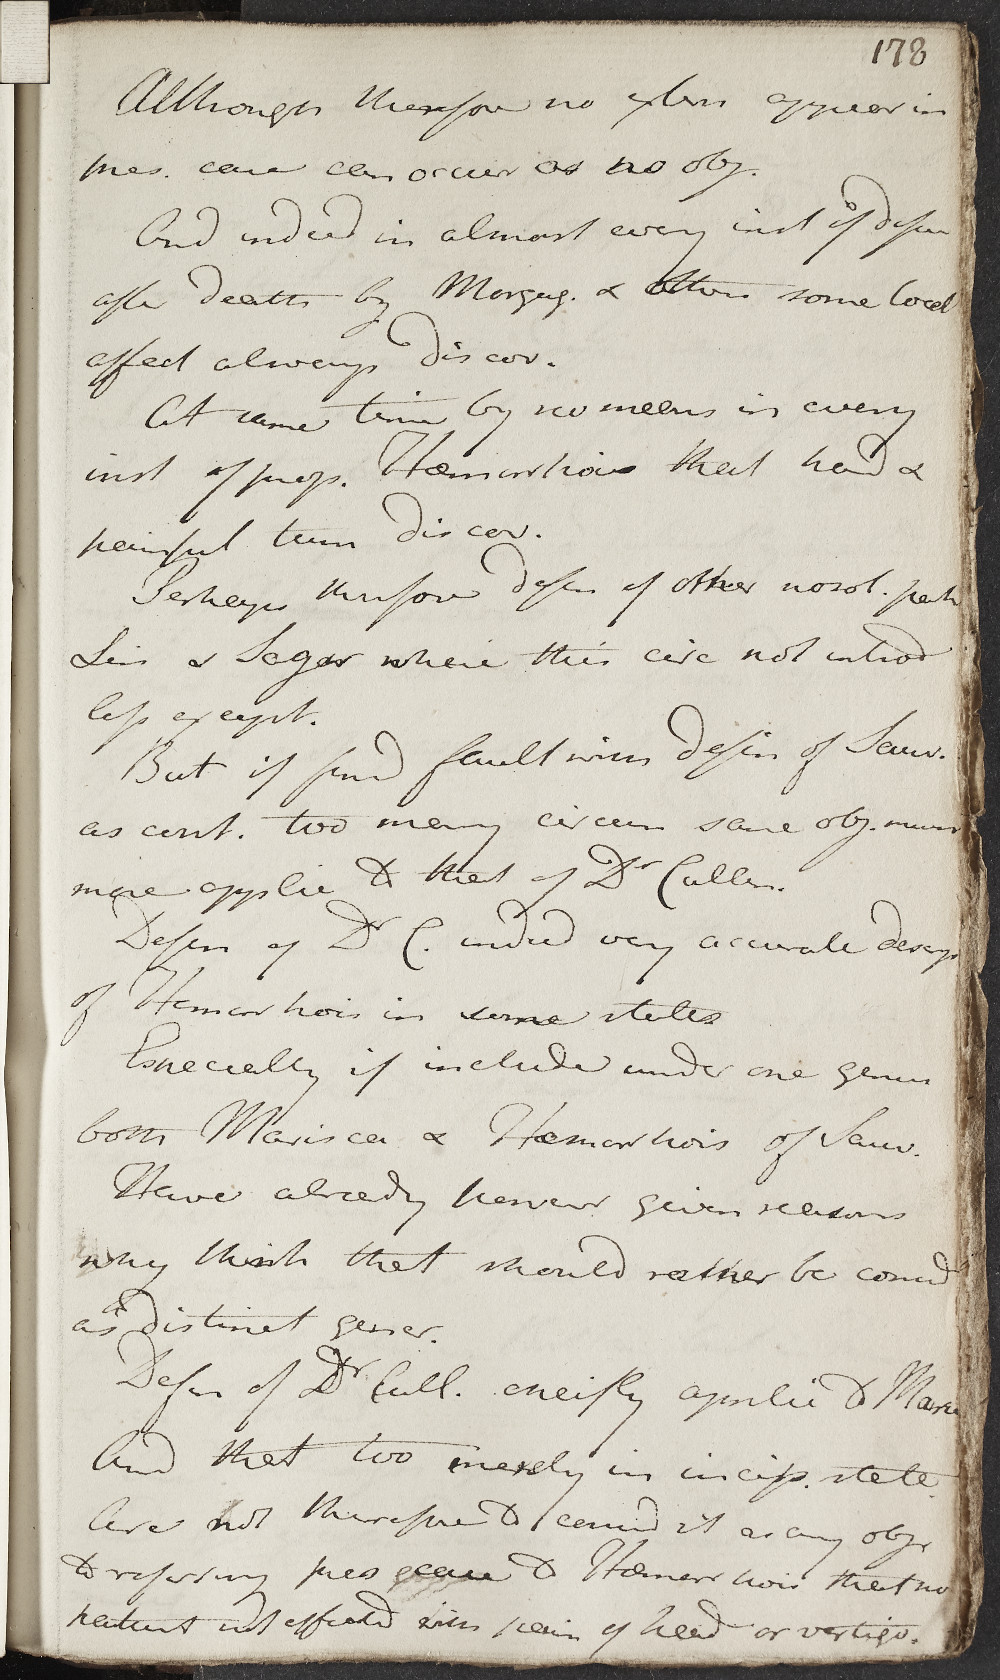 178
Although therefore no extern appear in
pres. case can occur as no obj.
And indeed in almost every inst of dissn
after death by Morgag. & others some local
affect always discov.
At same time by no means in every
inst of prop. Hæmorrhois that head &
painful tum discov.
Perhaps therefore defin of other nosol. part
Lin & Sagar where this circ not introd
less except.
But if find fault with defin of Sauv.
as cont. too many circum same obj. much
more applic to that of Dr Cullen.
Defin of Dr C. indeed very accurate descrip
of Hemorrhois in some states
Especially if include under one genus
both Marisca & Hæmorrhois of Sauv.
Have already however given reasons
why think that should rather be consid
as distinct gener.
Defin of Dr Cull. chiefly applic to Marisc
And that too merely in incip. state
Are not therefore to consid it as any obj.
to referring pres case to Hæmorrhois that no
patient not affected with pain of head or vertigo.